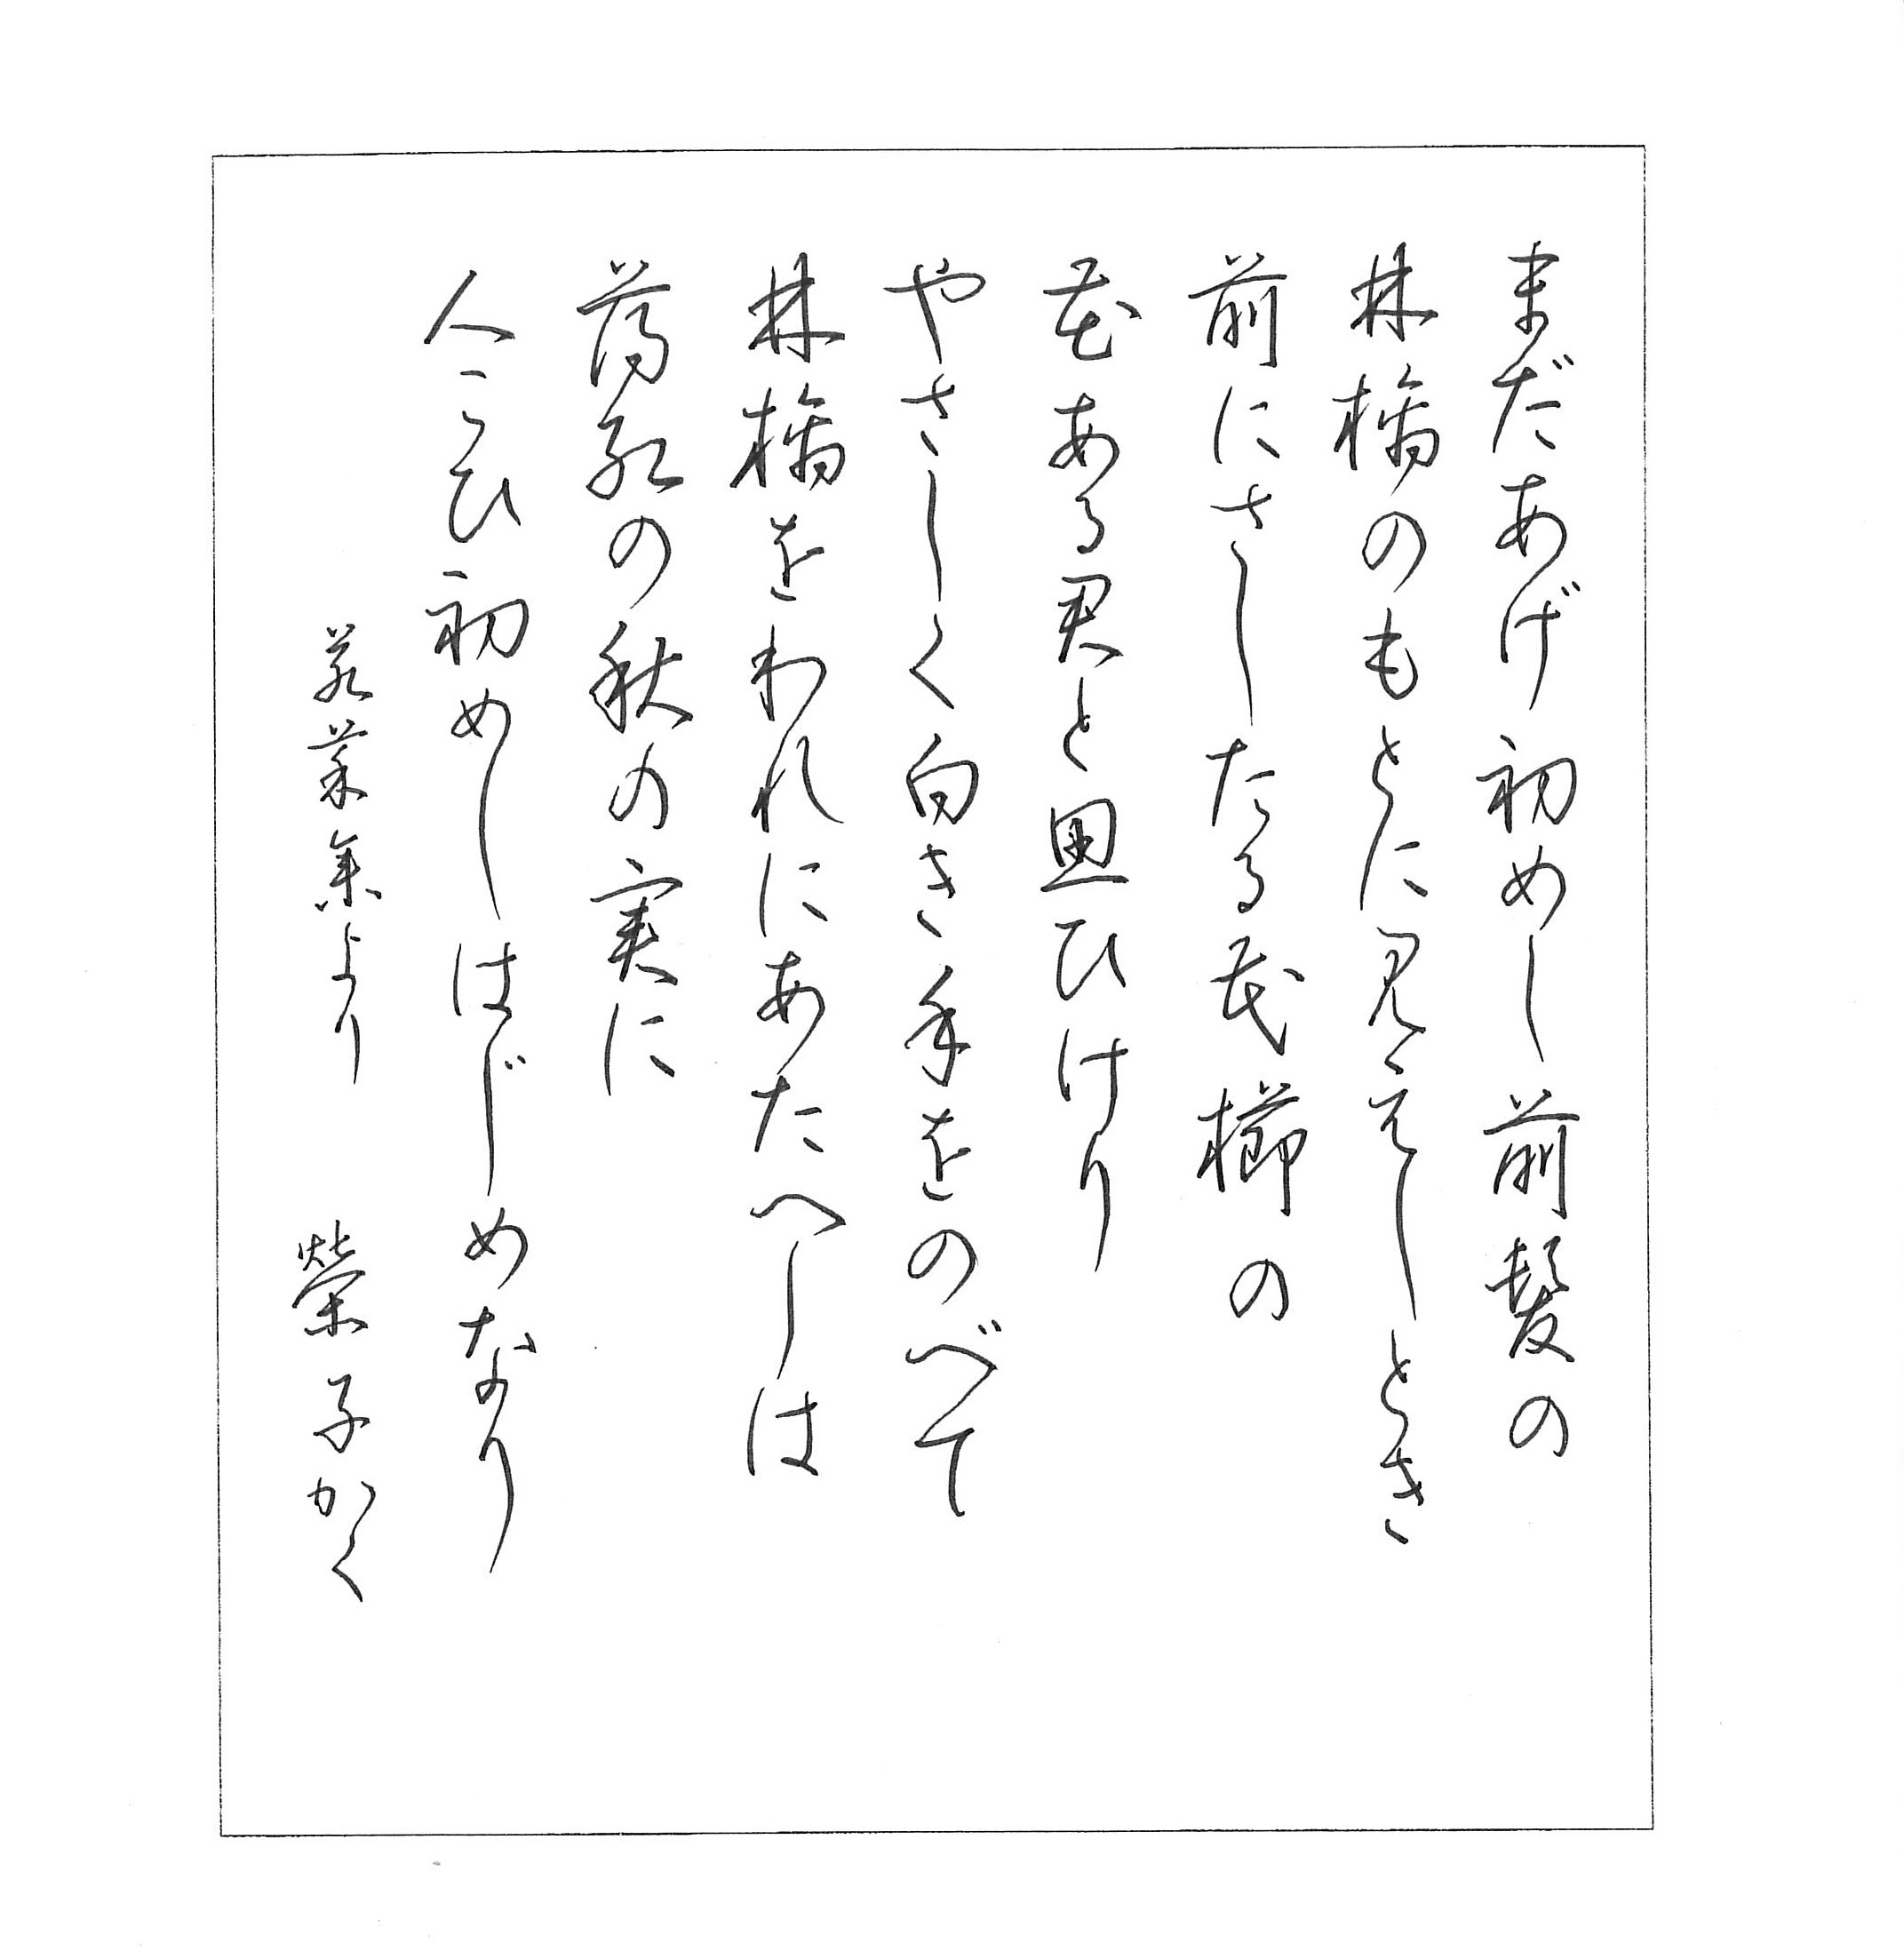 まだあげ初めし前髪の
林檎のもとに見えしとき
前にさしたる花櫛の
花ある君と思ひけり
やさしく白き手をのべて
林檎をわれにあたへしは
薄紅の秋の実に
人こひ初めしはじめなり
若菜集より 榮子かく